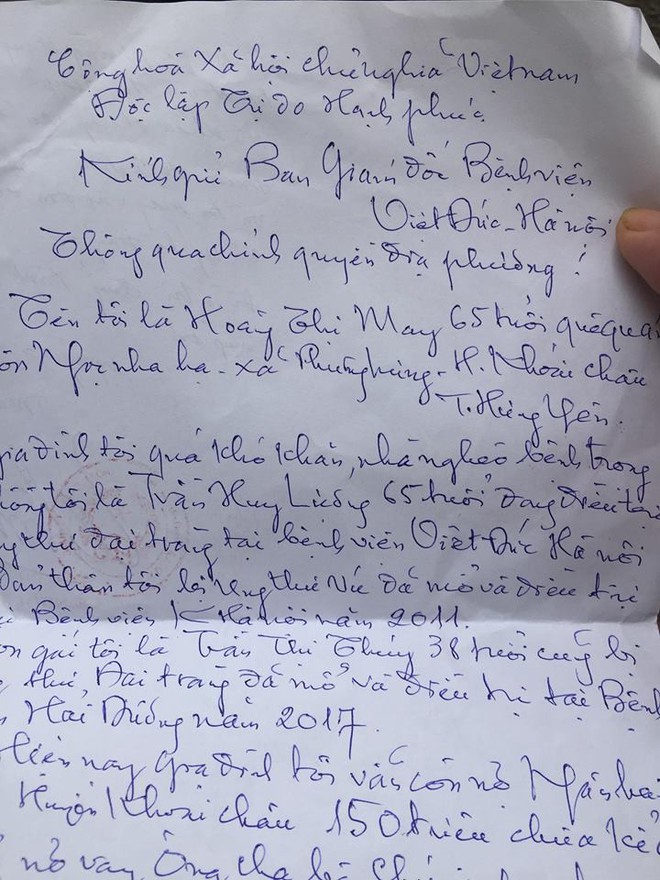 Cộng hoà Xã hội chủ nghĩa Việt nam
Độc lập Tự do Hạnh phúc
Kính gửi Ban Giám đốc Bệnh viện
Việt Đức - Hà nội
Thông qua chính quyền địa phương !
Tên tôi là Hoàng Thị May 65 tuổi quê quán
ôn Ngọc nha hạ - xã Phùng hưng - H. Khoái châu
T. Hưng Yên.
gia đình tôi quá khó khăn, nhà nghèo bệnh trọng
hồng tôi là Trần Huy Lường 65 tuổi đang điều tại
ng thư đại tràng tại bệnh viện Việt Đức Hà nội
Bản thân tôi bị ung thư Vú đã mổ và điều trị
Bệnh viện K Hà nội năm 2011.
on gái tôi là Trần Thị Thúy 38 tuổi cũng bị
thư Đại tràng đã mổ và điều trị tại Bệnh
Hải Dương năm 2017.
Hiện nay gia đình tôi vẫn còn nợ Ngân hà
Huyện Khoái châu 150 triệu chưa kể
nợ vay Ông cha